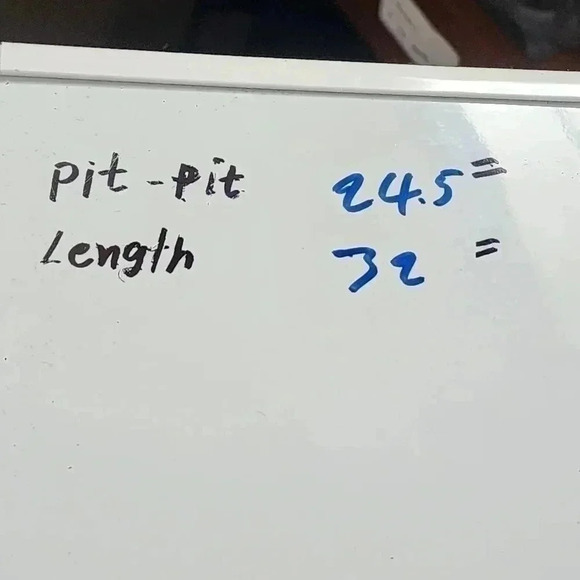 Pit-Pit 24.5=
Length 32 =